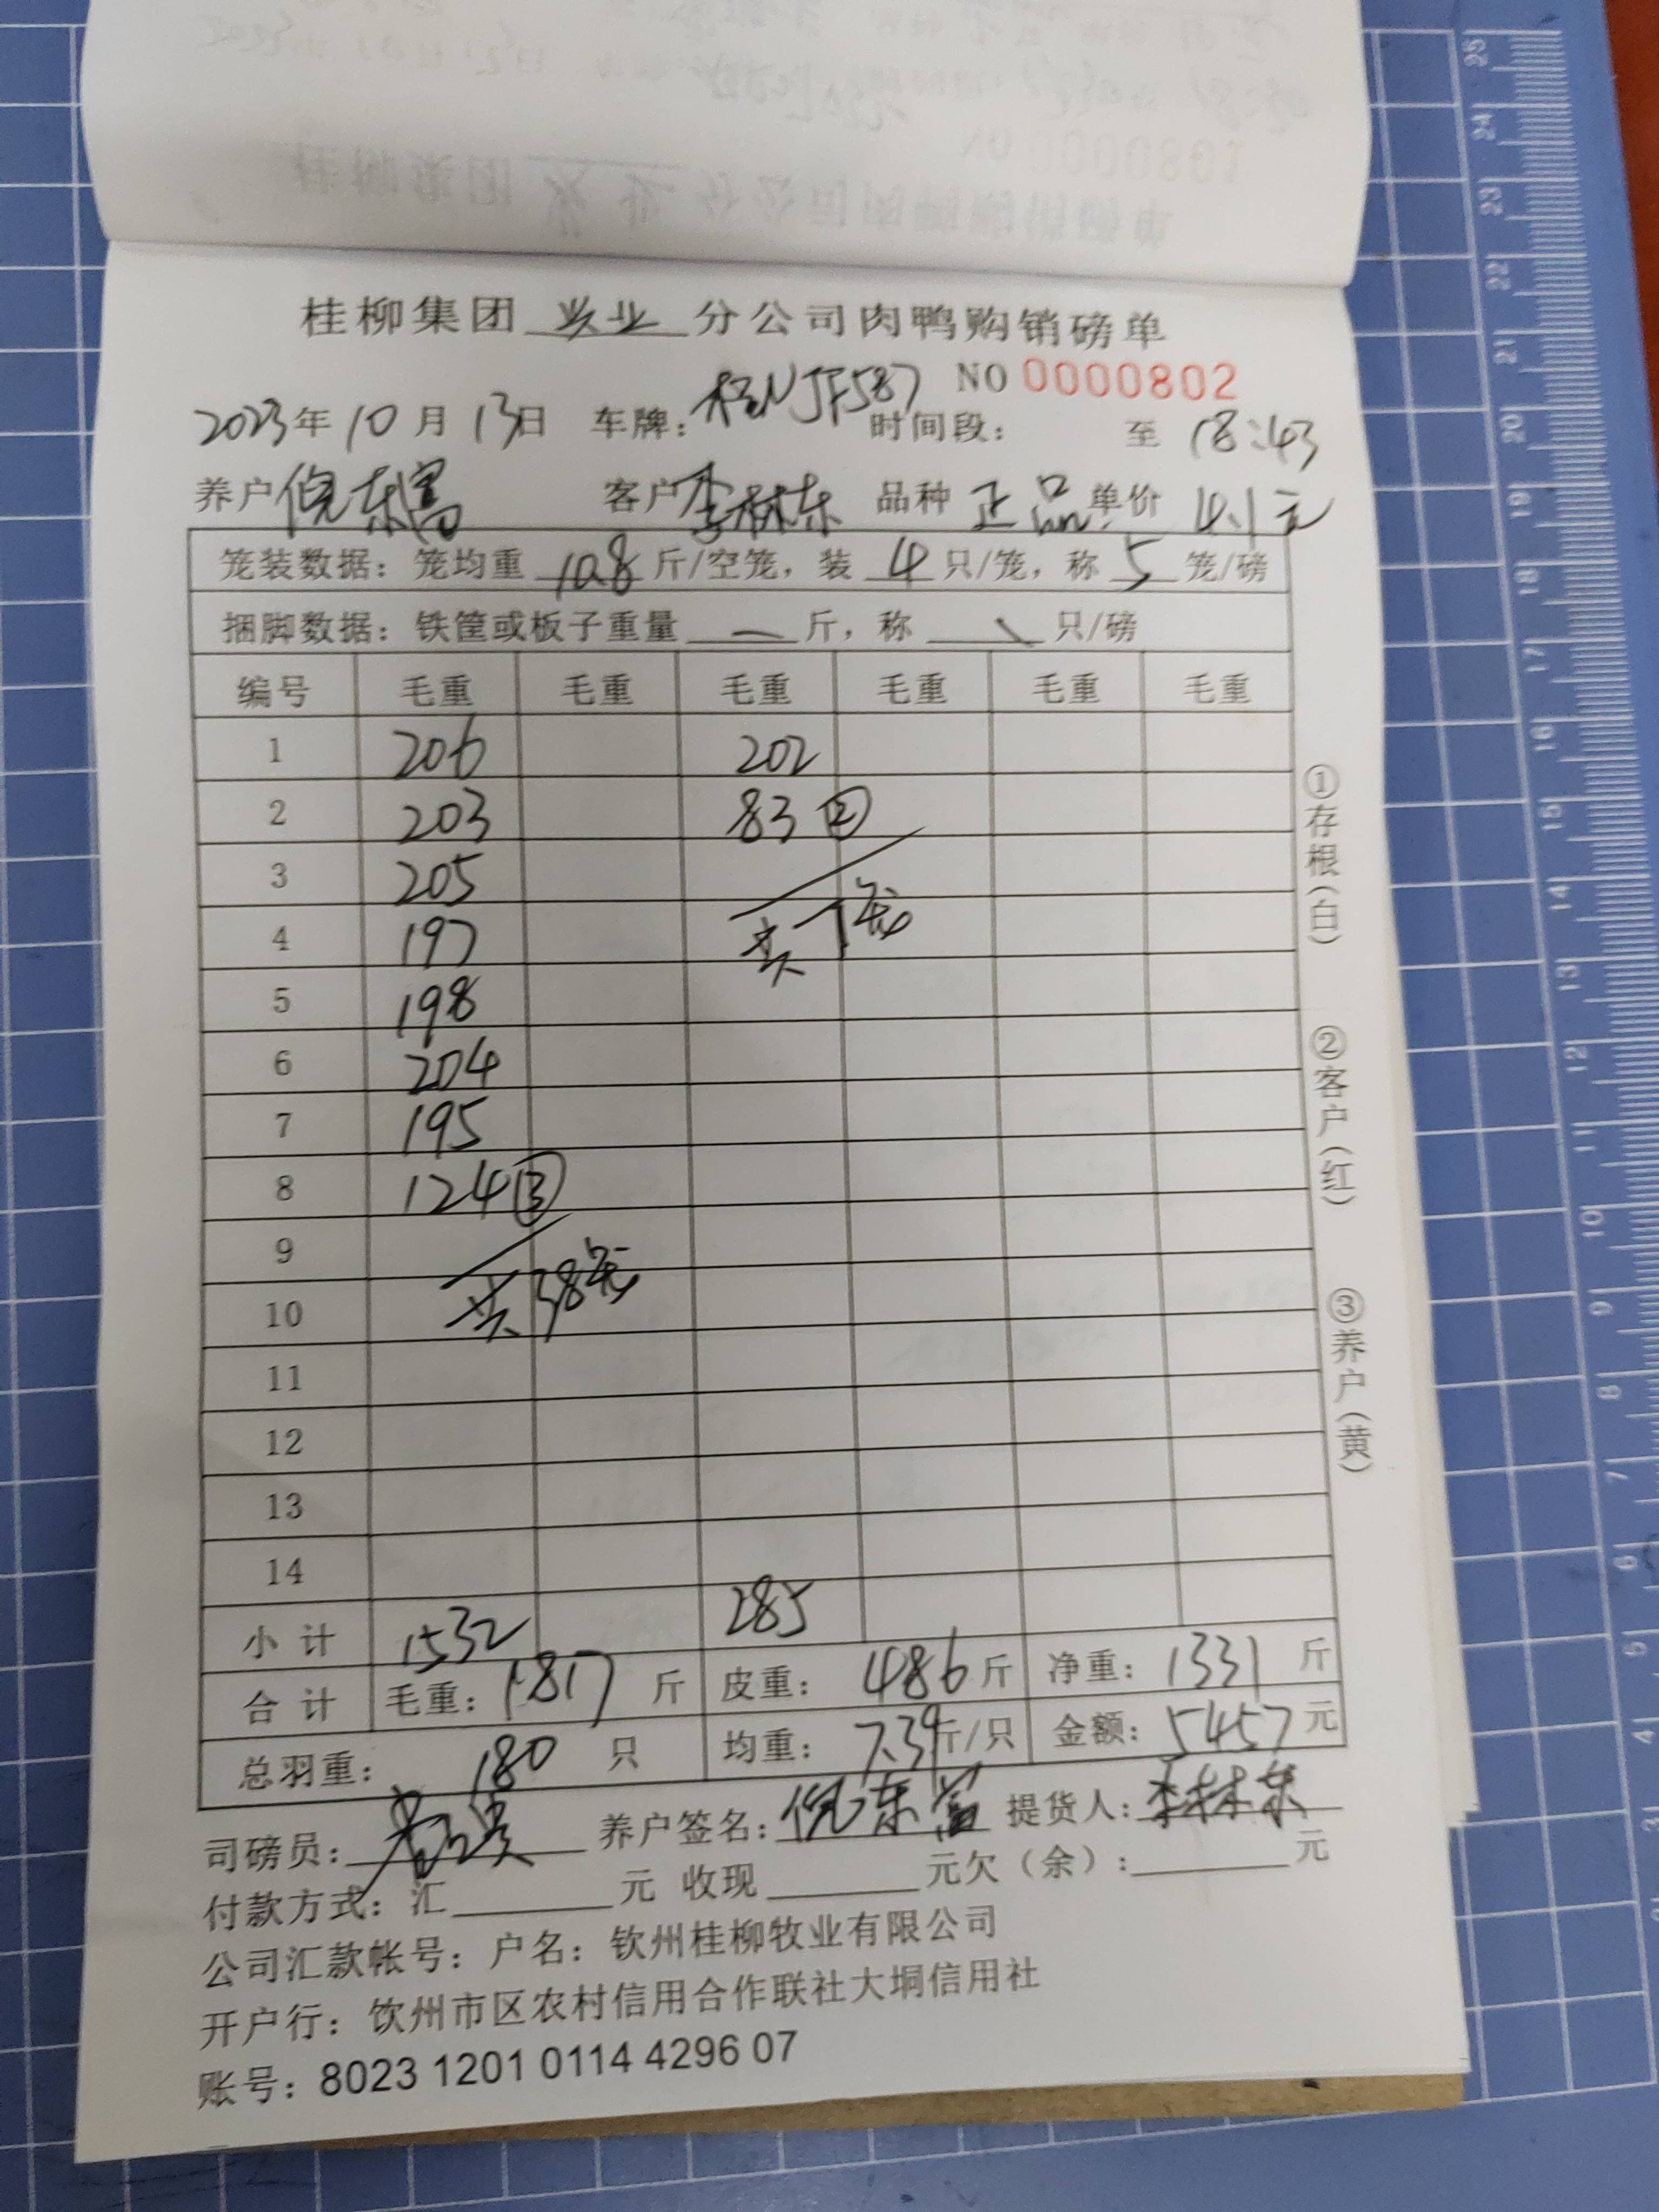 桂柳集团 兴业 分公司肉鸭购销磅单
NO 0000802
2023年 10 月 13日 车牌: 桂NJF587 时间段: 至 18:43
养户 倪东富 客户 李林东 品种 正品 单价 4.1元
笼装数据: 笼均重 10.8 斤/空笼, 装 4 只/笼, 称 5 笼/磅
捆脚数据: 铁筐或板子重量 斤, 称 只/磅
编号 毛重 毛重 毛重 毛重 毛重 毛重
1 206 202
2 203 83 ②
3 205
4 197 共 7笼
5 198
6 204
7 195
8 124 ③
9
10 共 38笼
11
12
13
14
小 计 1532 285
合 计 毛重: 1817 斤 皮重: 486 斤 净重: 1331 斤
总羽重: 180 只 均重: 7.39 斤/只 金额: 5457 元
司磅员: 养户签名: 倪东富 提货人: 李林东
付款方式: 汇 元 收现 元欠(余): 元
公司汇款帐号: 户名: 钦州桂柳牧业有限公司
开户行: 钦州市区农村信用合作联社大垌信用社
账号: 8023 1201 0114 4296 07
①存根(白)
②客户(红)
③养户(黄)
25
24
23
22
21
20
19
18
17
16
15
14
13
12
11
10
9
8
7
6
5
4
3